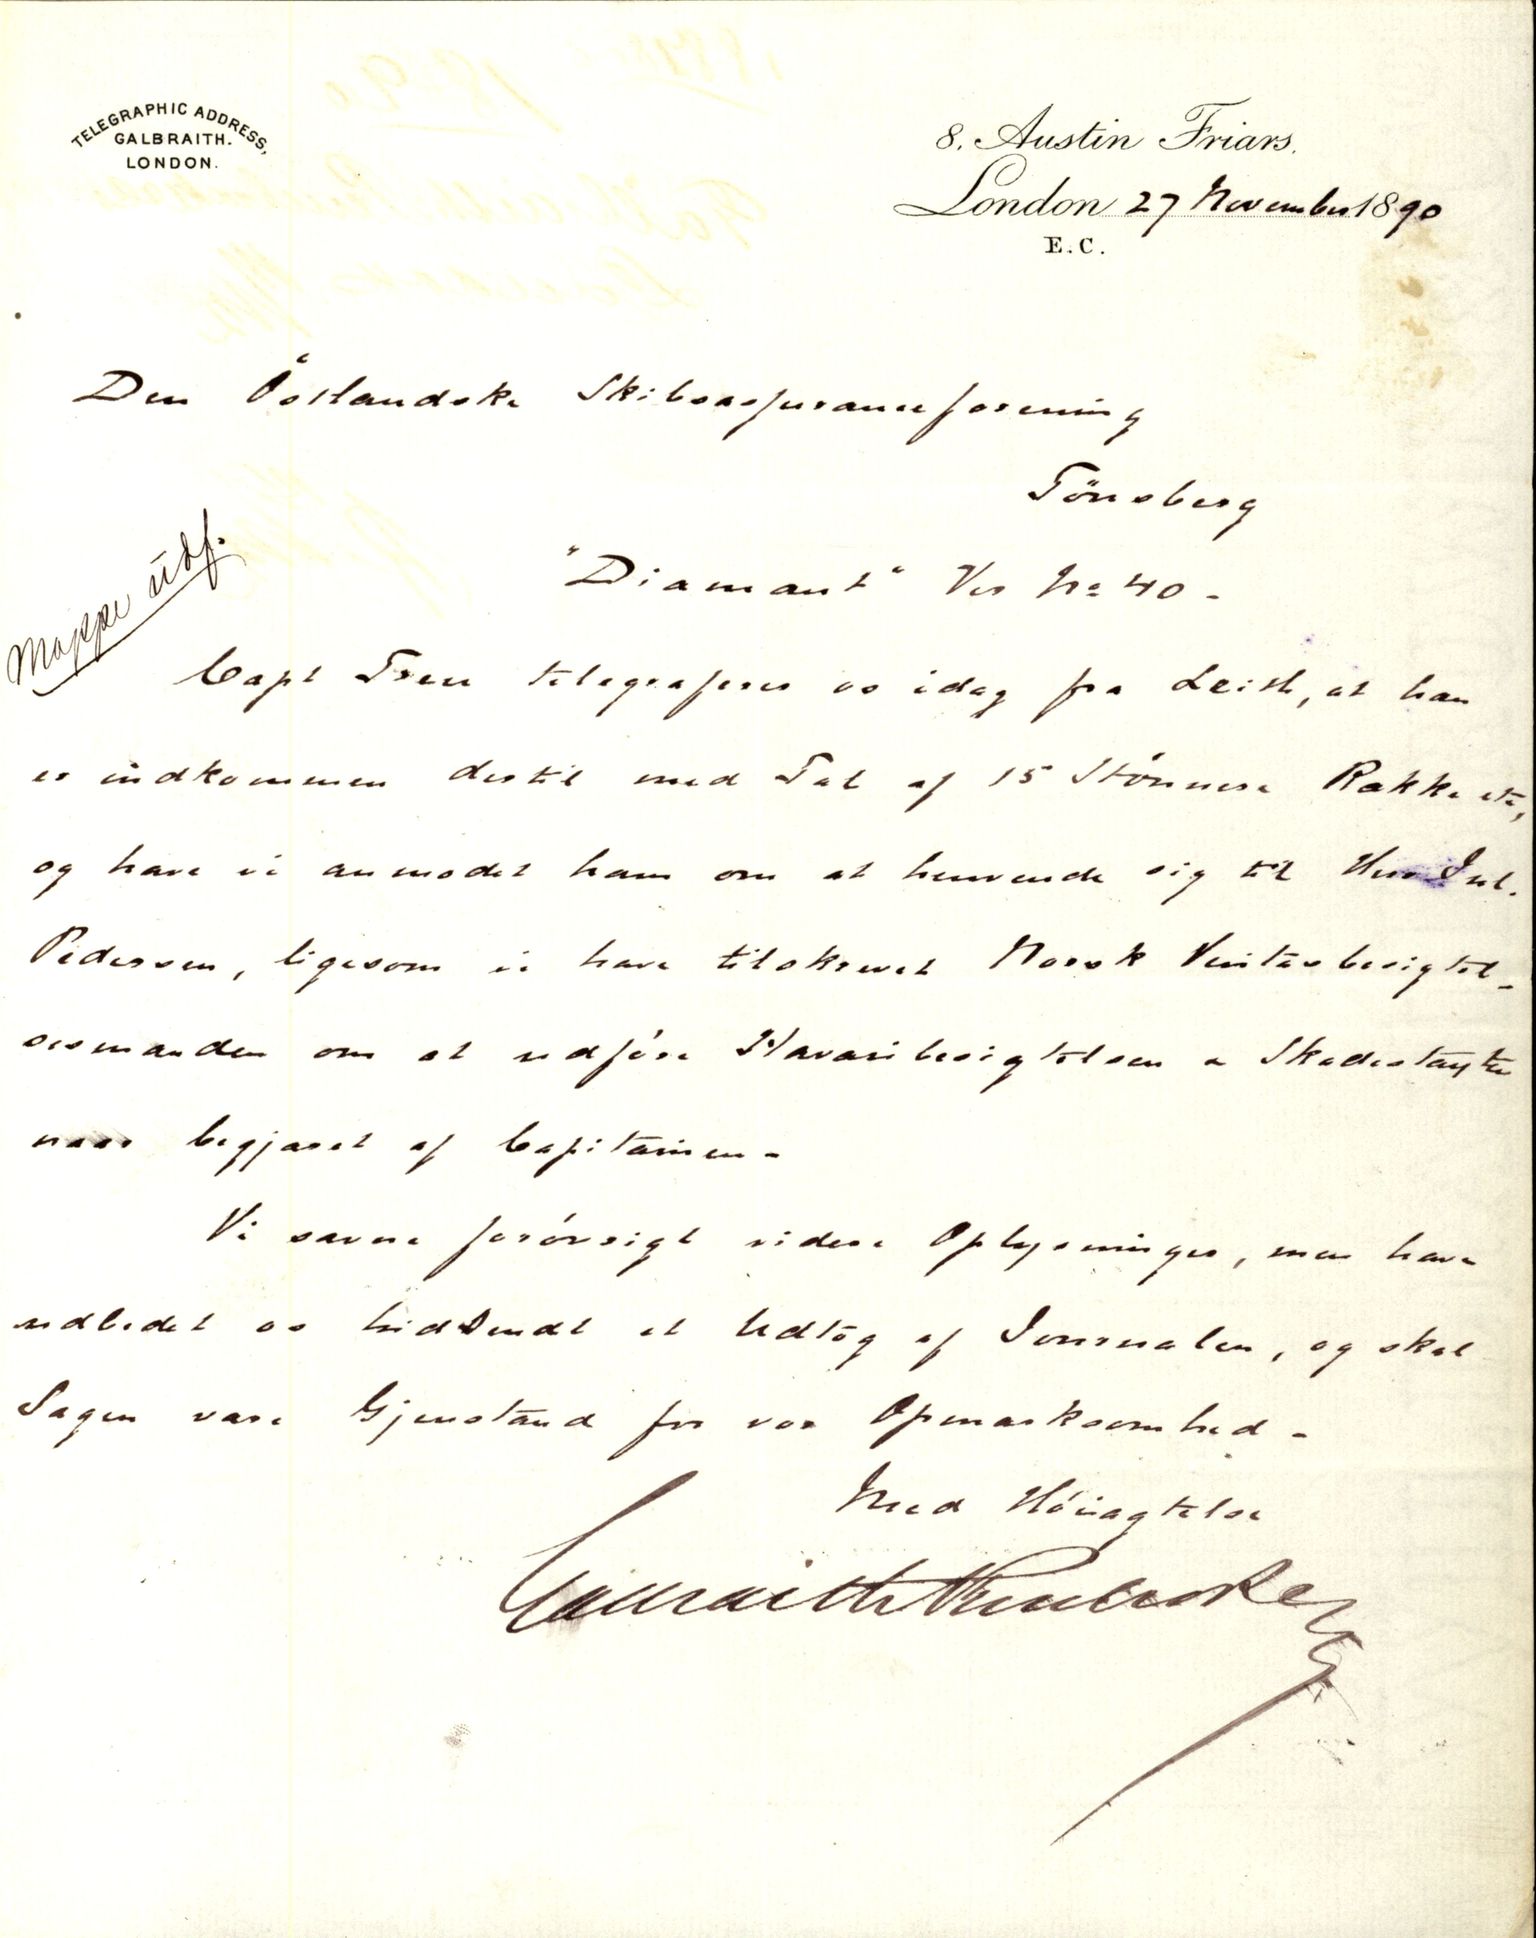 TELEGRAPHIC ADDRESS,
GALBRAITH.
LONDON.
8, Austin Friars.
London 27 November 1890
E.C.
Den Östlandske Skibsassuranceforening
Tönsberg
Mappe udf.
"Diamant" Ves No 40 -
Capt telegraferer os idag fra Leith, at han
er indkommen dertil med Tab af 15 Stönnere Rakke etc,
og have vi anmodet ham om at henvende sig til Herr Jul.
Pedersen, ligesom vi have tilskrevet Norsk Veritasbesigtel-
sesmanden om at udföre Havaribesigtelsen a Skadestaxten
naar begjæret af Capitainen -
Vi savne forövrigt videre Oplysninger, men have
udbedet os tidsendt et Udtog af Journalen, og skal
Sagen være Gjenstand for vor Opmærksomhed -
Med Höiagtelse
Galbraith Pembroke